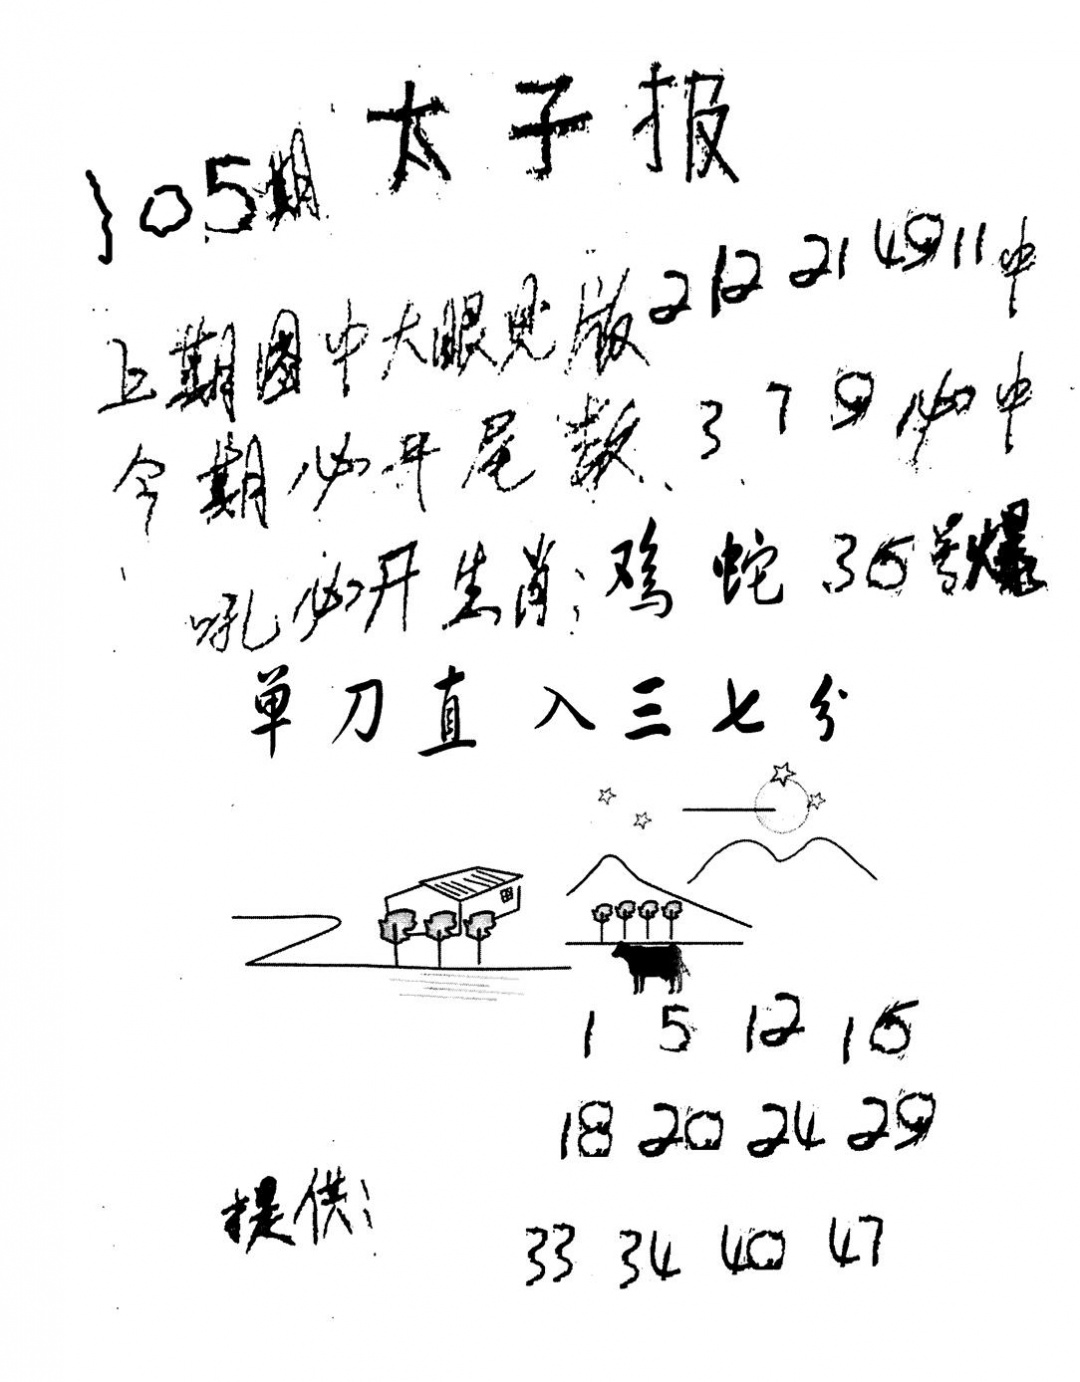 太子报
105期
上期图中大眼见版2 12 21 49 11中
今期必开尾数 3 7 9必中
吼必开生肖:鸡 蛇 36号爆
单刀直入三七分
1 5 12 16
18 20 24 29
提供:
33 34 40 47